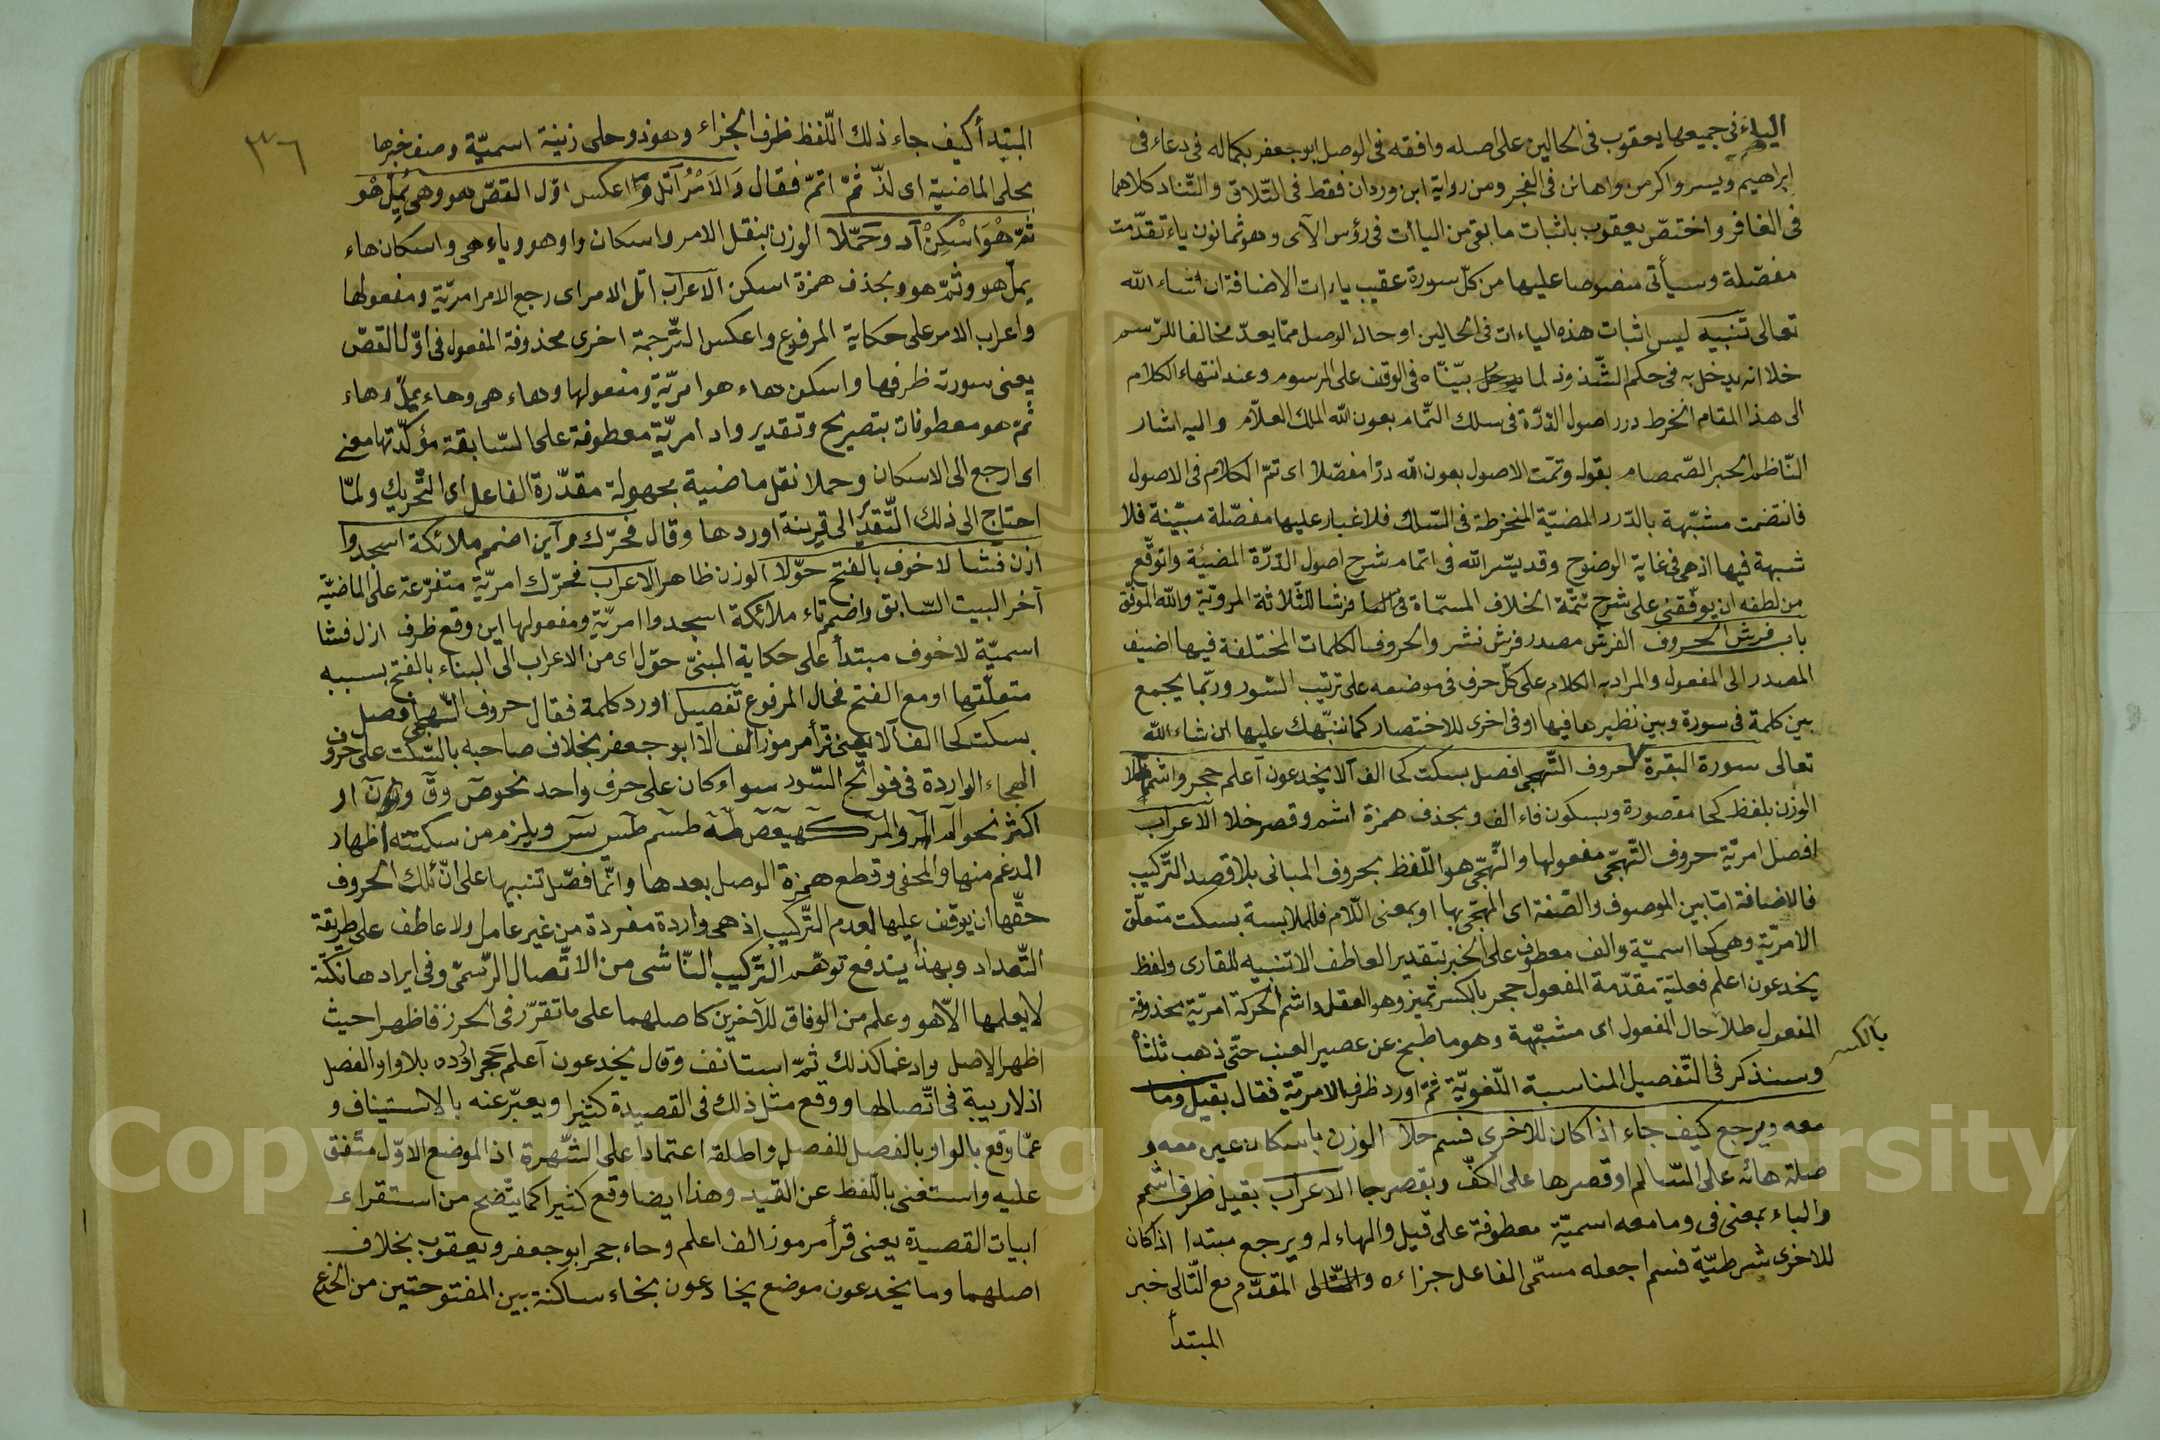 الياء فى جميعها يعقوب فى الحالين على اصله وافقه فى الوصل ابو جعفر بكماله فى دعاء فى
ابراهيم ويسر واكرمن واهانن فى الفجر ومن رواية ابن وردان فقط فى التّلاق والتّناد كلاهما
فى الغافر واختصّ يعقوب باثبات ما بقى من الياات فى رؤس الآى وهو ثمانون ياء تقدّمت
مفصّلة وسيأتى منصوصا عليها من كلّ سورة عقيب ياءات الاضافة ان شاء الله
تعالى تنبيه ليس اثبات هذه الياءات فى الحالين او حال الوصل ممّا يعدّ مخالفا للرّسم
خلا انه يدخل به فى حكم الشّذوذ لما بيّنّاه فى الوقف على المرسوم وعند انتهاء الكلام
الى هذا المقام انخرط درر اصول الدّرّة فى سلك التّمام بعون الله الملك العلاّم واليه اشار
النّاظم الحبر الصّمصام بقوله وتمّت الاصول بعون الله درّا مفصّلا اى تمّ الكلام فى الاصول
فانتضمت مشبّهة بالدّرر المضيّة المنخرطة فى السّلك فلا غبار عليها مفصّلة مبيّنة فلا
شبهة فيها اذ هى فى غاية الوضوح وقد يسّر الله فى اتمام شرح اصول الدّرّة المضيئة واتوقّع
من لطفه ان يوفّقنى على شرح تتمّة الخلاف المسمّاة فرشا للثّلاثة المرويّة والله الموفّق
باب فرش الحروف الفرش مصدر فرش نشر والحروف الكلمات المختلفة فيها اضيف
المصدر الى المفعول والمراد به الكلام على كلّ حرف فى موضعه على ترتيب السّور وربّما يجمع
بين كلمة فى سورة وبين نظيرها فيها او فى اخرى للاختصار كما ننبّهك عليها ان شاء الله
تعالى سورة البقرة حروف التّهجى افصل بسكت كحا الف الا يخدعون اعلم حجر واشمم طلا
الوزن بلفظ كحا مقصورة وبسكون فاء الف وبحذف همزة اشم وقصر خلا الاعراب
افصل امريّة حروف التّهجّى مفعولها والتّهجّى هو اللّفظ بحروف المبانى بلا قصد التّركيب
فالاضافة امّا بين الموصوف والصّفة اى المهجّى بها او بمعنى اللّام فللملابسة بسكت متعلّق
الامريّة وهى كحا اسميّة والف معطوف على الخبر بتقدير العاطف الا تنبيه للقارى ولفظ
يخدعون اعلم فعليّة مقدّمة المفعول حجر بالكسر تميز وهو العقل واشم الحركة امريّة محذوفة
المفعول طلا حال المفعول اى مشبّهة وهو ما طبخ عن عصير العنب حتّى ذهب ثلثاه
بالكسر
وسنذكر فى التّفصيل المناسبة اللّغويّة ثمّ اورد ظرف الامريّة فقال بقيل وما
معه ويرجع كيف جاء اذا كان للاخرى فسم حلا الوزن باسكان عين معه و
صلة هائه على السّالم او قصرها على الكفّ وبقصر جا الاعراب بقيل ظرف اشمم
والباء بمعنى فى وما معه اسميّة معطوفة على قيل والهاء له ويرجع مبتدا اذا كان
للاخرى شرطيّة فسم اجعله مسمّى الفاعل جزاءه والتّالى المقدّم مع التّالى خبر
المبتدأ
٣٦
المبتدأ كيف جاء ذلك اللّفظ ظرف الجزاء وهو ذو حلى زينة اسميّة وصف خبرها
بحلى الماضية اى لذّ ثمّ اتمّ فقال والامر اتل واعكس اوّل القصّ هو وهى يملّ هو
ثمّ هو اسكن اد وحمّلا الوزن بنقل الامر واسكان واو هو وياء هى واسكان هاء
يملّ هو وثمّ هو وبحذف همزة اسكن الاعراب اتل الامر اى رجع الامر امريّة ومفعولها
واعراب الامر على حكاية المرفوع واعكس التّرجمة اخرى محذوفة المفعول فى اوّل القصّ
يعنى سورته ظرفها واسكن هاء هو امريّة ومفعولها وهاء هى وهاء يملّ وهاء
ثمّ هو معطوفات بتصريح وتقدير واد امريّة معطوفة على السّابقة مؤكّدتها معنى
اى ارجع الى الاسكان وحملا نقل ماضية مجهولة مقدّرة الفاعل اى التّحريك ولمّا
احتاج الى ذلك التّقدير الى قرينة اوردها وقال فحرّك واين اضمم ملائكة اسجدوا
ازل فشا لا خوف بالفتح حوّلا الوزن ظاهر الاعراب فحرّك امريّة متفرّعة على الماضيّة
آخر البيت السّابق واضمم تاء ملائكة اسجدوا امريّة ومفعولها اين وقع ظرف ازل فشا
اسميّة لا خوف مبتدأ على حكاية المبنىّ حوّل اى من الاعراب الى البناء بالفتح بسببه
متعلّقتها او مع الفتح فحال المرفوع تفصيل اورد كلمة فقال حروف التّهجّى افصل
بسكت كحا الف الا يعنى قرأ مرموز الف الا ابو جعفر بخلاف صاحبه بالسّكت على حروف
الهجاء الواردة فى فواتح السّور سواء كان على حرف واحد نحو ص وق ون او
اكثر نحو الم الر والمر كهيعص طه طسم طس يس ويلزم من سكتته اظهار
المدغم منها والمخفى وقطع همزة الوصل بعدها وانّما فصّل تنبيها على انّ تلك الحروف
حقّها ان يوقف عليها لعدم التّركيب اذ هى واردة مفردة من غير عامل ولا عاطف على طريقة
التّعداد وبهذا يندفع توهّم التّركيب النّاشى من الاتّصال الرّسمىّ وفى ايرادها نكتة
لا يعلمها الاّ هو وعلم من الوفاق للآخرين كاصلهما على ما تقرّر فى الحرز فاظهرا حيث
اظهر الاصل وادغما كذلك ثمّ استانف وقال يخدعون اعلم حجر اورده بلا واو الفصل
اذ لا ريبة فى اتّصالها ووقع مثل ذلك فى القصيدة كثيرا ويعبّر عنه بالاستيناف و
عمّا وقع بالواو بالفصل للفصل واطلقه اعتمادا على الشّهرة اذ الموضع الاوّل متّفق
عليه واستغنى باللّفظ عن القيد وهذا ايضا وقع كثيرا كما يتّضح من استقراء
ابيات القصيدة يعنى قرأ مرموز الف اعلم وحاء حجر ابو جعفر ويعقوب بخلاف
اصلهما وما يخدعون موضع يخادعون بخاء ساكنة بين المفتوحتين من الخدع
Copyright © King Saud University